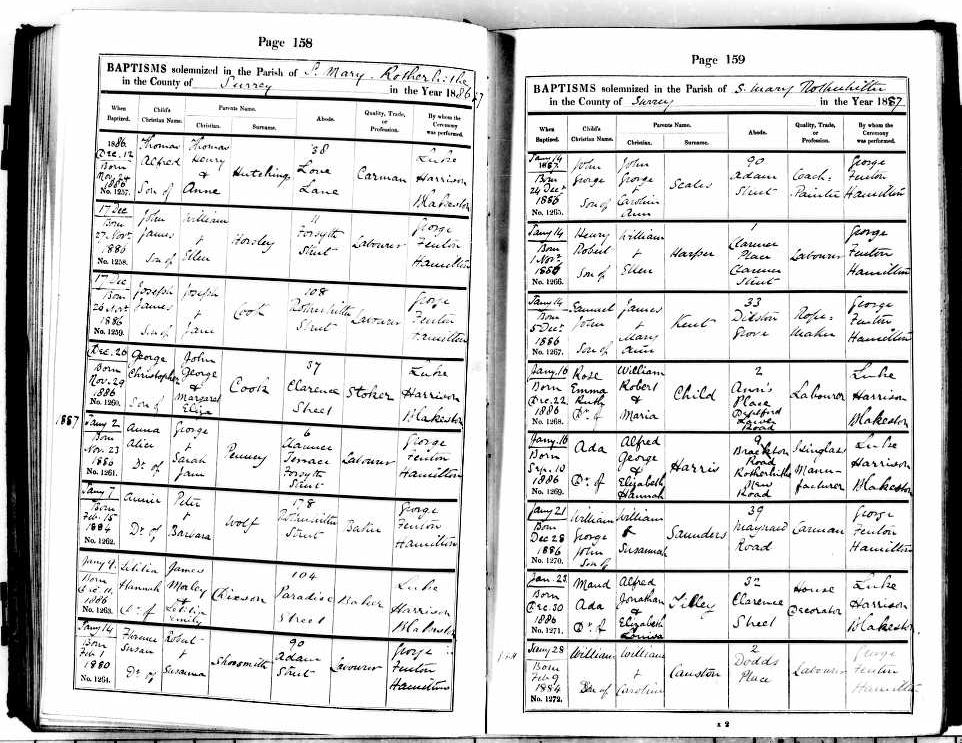 Page 158
BAPTISMS solemnized in the Parish of S. Mary. Rotherhithe
in the County of Surrey in the Year 1886/7
When Baptized. Child's Christian Name. Parents Name. Christian. Surname. Abode. Quality, Trade, or Profession. By whom the Ceremony was performed.
1886. Dec. 12 Born Nov. 24 1886 No. 1257. Thomas Alfred Son of Thomas Henry & Anne Hutchings 38 Love Lane Carman Luke Harrison Blakeston
17 Dec Born 27 Novr. 1886 No. 1258. John James Son of William + Ellen Horsley 11 Forsyth Street Labourer George Fenton Hamilton
17 Dec Born 26 Novr 1886 No. 1259. Joseph James Son of Joseph + Jane Cook 108 Rotherhithe Street Labourer George Fenton Hamilton
Dec. 26 Born Nov. 29 1886 No. 1260. George Christopher Son of John George & Margaret Eliza Cook 37 Clarence Street Stoker Luke Harrison Blakeston
1887 Jany 2 Born Nov. 23 1886 No. 1261. Anna Alice Dr. of George + Sarah Jane Penney 6 Terrace Forsyth Street Labourer George Fenton Hamilton
Jany 7 Born Feb. 15 1884 No. 1262. Annie Dr. of Peter + Barbara Wolf 178 Rotherhithe Street Baker George Fenton Hamilton
Jany 9. Born Dec 11. 1886 No. 1263. Letitia Hannah Dr. of James Morley & Letitia Emily 104 Paradise Street Baker Luke Harrison Blakeston
Jany 14 Born Feb 1 1880 No. 1264. Florence Susan Dr of Robert + Susanna Shoesmith 90 Adam Street Labourer George Fenton Hamilton
Page 159
BAPTISMS solemnized in the Parish of S. Mary Rotherhithe
in the County of Surrey in the Year 1887
When Baptized. Child's Christian Name. Parents Name. Christian. Surname. Abode. Quality, Trade, or Profession. By whom the Ceremony was performed.
Jany 14 1887. Born 24 Decr 1886 No. 1265. John George Son of John George + Caroline Ann Scales 90 Adam Street Coach: Painter George Fenton Hamilton
Jany 14 Born 1 Novr. 1886 No. 1266. Henry Robert Son of William + Ellen Harper 1 Place Street Labourer George Fenton Hamilton
Jany 14 Born 5 Decr. 1886 No. 1267. Samuel John Son of James + Mary Ann Kent 33 Grove Rope: Maker George Fenton Hamilton
Jany. 16 Born Dec. 22 1886 No. 1268. Rose Emma Ruth Dr. of William Robert & Maria Child 2 Ann's Place Deptford Lower Road Labourer Luke Harrison Blakeston
Jany. 16 Born Sep. 10 1886 No. 1269. Ada Dr. of Alfred George & Elizabeth Hannah Harris 9 Road Rotherhithe New Road Isinglass Manufacturer Luke Harrison Blakeston
Jany 21 Born Dec 28 1886 No. 1270. William George John Son of William & Susannah Saunders 39 Maynard Road Carman George Fenton Hamilton
Jan. 23. Born Dec. 30 1886 No. 1271. Maud Ada Dr. of Alfred Jonathan & Elizabeth Louisa Tilley 32 Clarence Street House Decorator Luke Harrison Blakeston
Jany 28 Born Feb 9 1884 No. 1272. William Son of William + Caroline Causton 2 Dodds Place Labourer George Fenton Hamilton
X 2